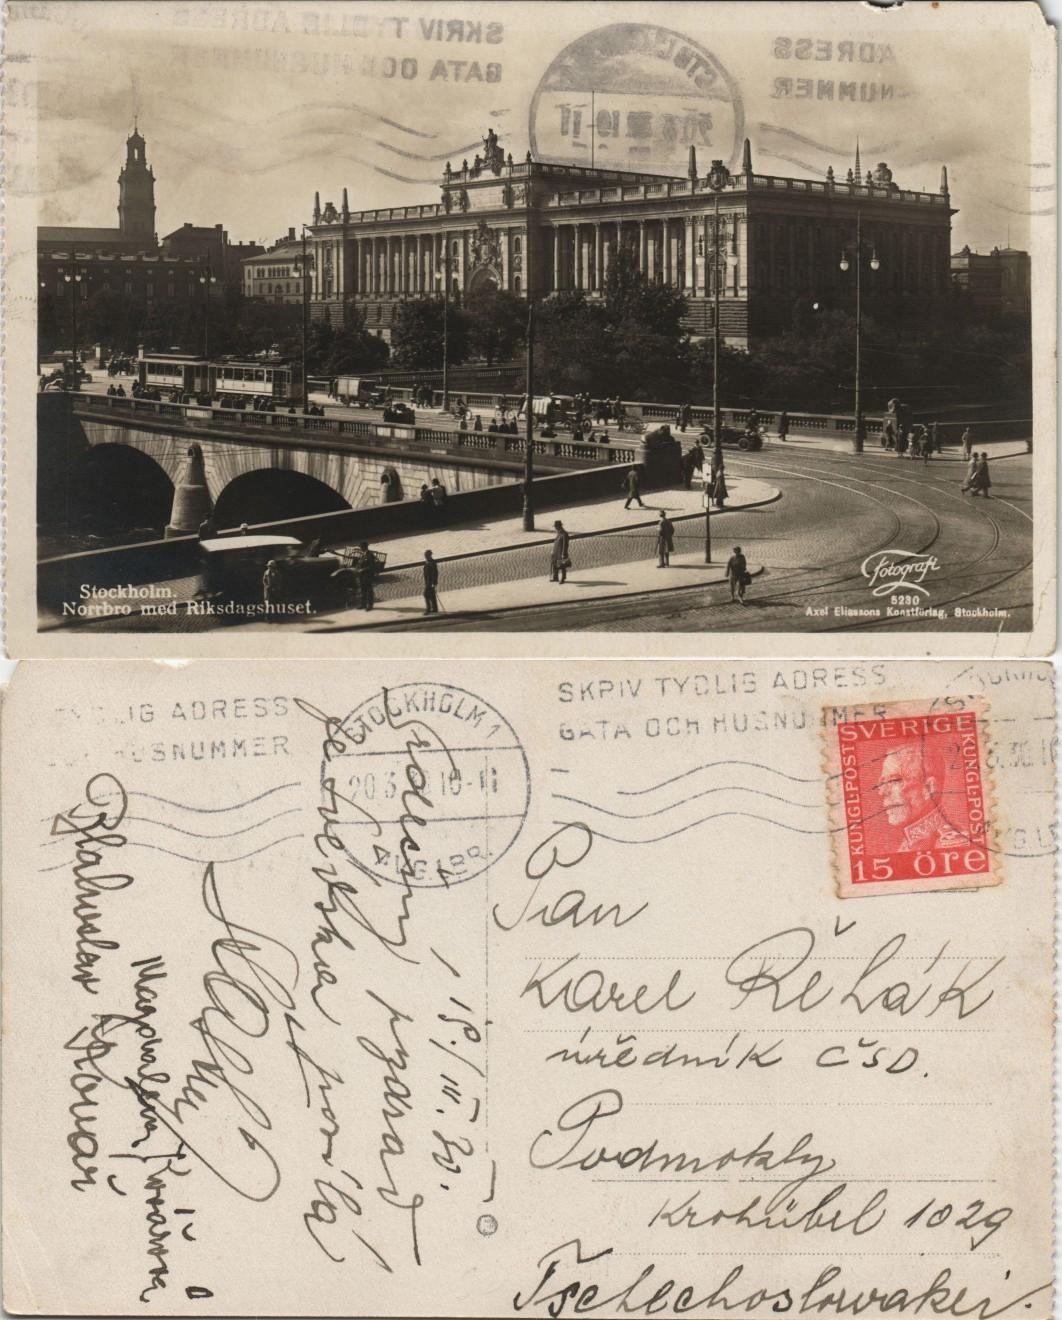 SKRIV TYDLIG ADRESS
GATA OCH HUSNUMMER
ADRESS
NUMMER
Stockholm.
Norrbro med Riksdagshuset.
Fotografi
5230
Axel Eliassons Konstförlag, Stockholm.
TYDLIG ADRESS
HUSNUMMER
STOCKHOLM 1
20 3 10-11
AVG. LBR.
SKRIV TYDLIG ADRESS
GATA OCH HUSNUMMER
SVERIGE
KUNGL·POST
KUNGL·POST
15 ÖRE
Pan
Karel Řehák
úředník ČSD.
Podmokly
Krohübel 1029
Tschechoslowakei.
18./III.30.
Srdečný pozdrav
ze Švédska
posílá
Magdalena Kovářová
Blahoslav Kovář